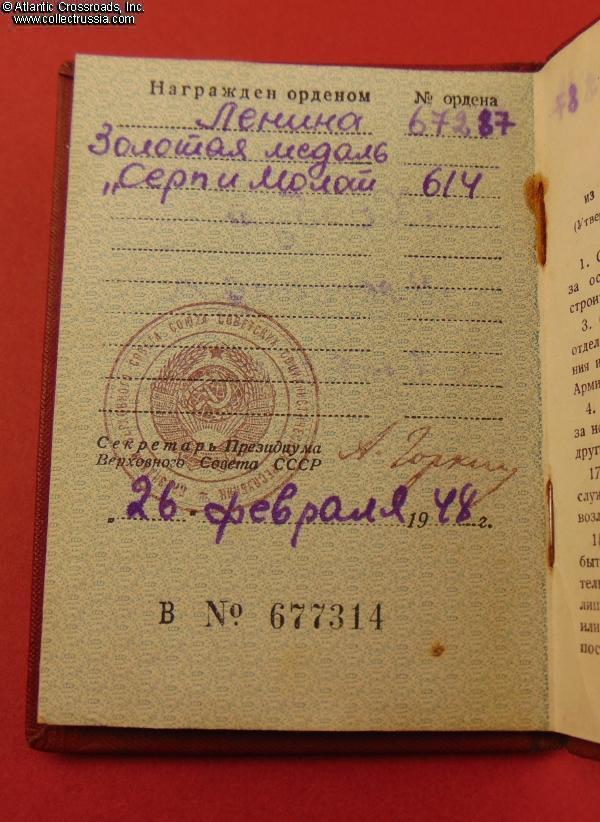 © Atlantic Crossroads, Inc.
www.collectrussia.com
Награжден орденом № ордена
Ленина 67287
Золотая медаль
„Серп и Молот 614
Секретарь Президиума
Верховного Совета СССР
А. Горкин
„26 февраля 1948 г.
В № 677314
из
(Утве
1. С
за ос
строи
3.
отдел
ния и
Арми
4.
за не
друг
17
служ
возл
быт
тель
лиш
или
пос